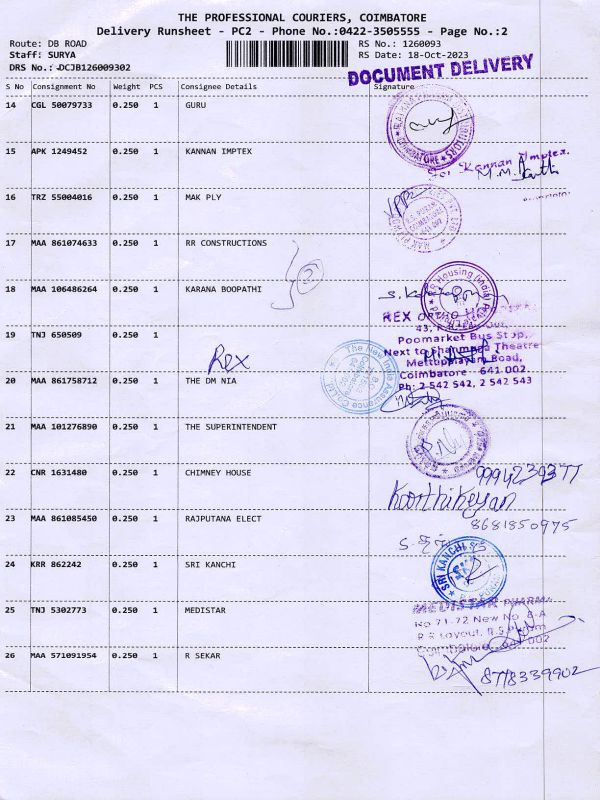 THE PROFESSIONAL COURIERS, COIMBATORE
Delivery Runsheet - PC2 - Phone No.:0422-3505555 - Page No.:2
Route: DB ROAD RS No.: 1260093
Staff: SURYA RS Date: 18-Oct-2023
DRS No.: DCJB126009302
DOCUMENT DELIVERY
S No Consignment No Weight PCS Consignee Details Signature
14 CGL 50079733 0.250 1 GURU
COIMBATORE
15 APK 1249452 0.250 1 KANNAN IMPTEX
for Kannan Imptex.
16 TRZ 55004016 0.250 1 MAK PLY
17 MAA 861074633 0.250 1 RR CONSTRUCTIONS
18 MAA 106486264 0.250 1 KARANA BOOPATHI
REX ORTHO
43,
19 TNJ 650509 0.250 1
Rex
Poomarket Bus Stop,
Next to Shanmuga Theatre
Mettupalayam Road,
Coimbatore - 641 002.
Ph: 2 542 542, 2 542 543
The New India Assurance Co. Ltd.
20 MAA 861758712 0.250 1 THE DM NIA
21 MAA 101276890 0.250 1 THE SUPERINTENDENT
22 CNR 1631480 0.250 1 CHIMNEY HOUSE
9994239377
Karthikeyan
23 MAA 861085450 0.250 1 RAJPUTANA ELECT
8681850975
24 KRR 862242 0.250 1 SRI KANCHI
SRI KANCHI
25 TNJ 5302773 0.250 1 MEDISTAR
MEDISTAR PHARMA
No 71-72 New No 8-A
R.S Layout, R.S Puram
Coimbatore 641 002
26 MAA 571091954 0.250 1 R SEKAR
8778339902